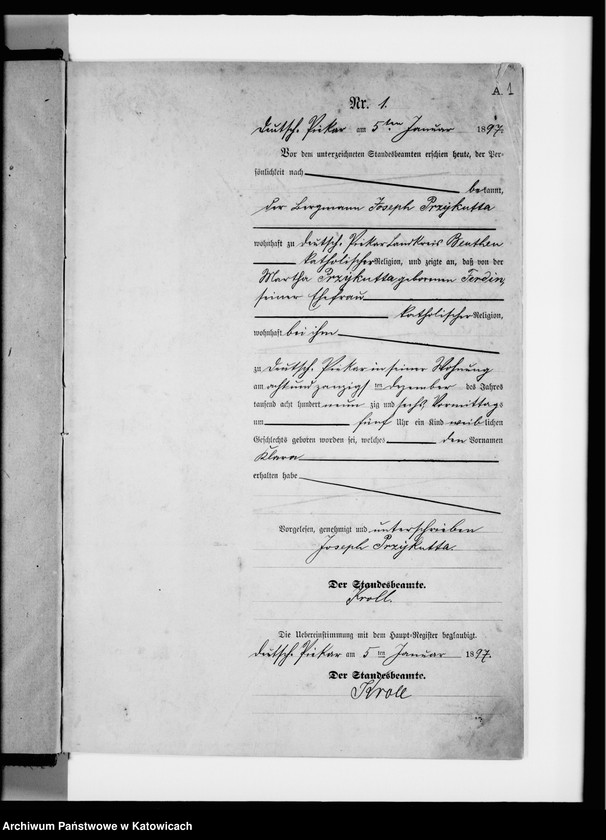 A. 1
Nr. 1.
Deutsch. Piekar am 5ten Januar 1897.
Vor dem unterzeichneten Standesbeamten erschien heute, der Per-
sönlichkeit nach
bekannt,
der Bergmann Joseph Przykutta
wohnhaft zu Deutsch. Piekar Landkreis Beuthen
katholischer Religion, und zeigte an, daß von der
Martha Przykutta, geborenen Ferdin,
seiner Ehefrau
katholischer Religion,
wohnhaft bei ihm
zu Deutsch. Piekar in seiner Wohnung
am acht und zwanzigsten Dezember des Jahres
tausend acht hundert neunzig und sechs Vormittags
um fünf Uhr ein Kind weiblichen
Geschlechts geboren worden sei, welches den Vornamen
Klara
erhalten habe
Vorgelesen, genehmigt und unterschrieben
Joseph Przykutta.
Der Standesbeamte.
Kroll.
Die Uebereinstimmung mit dem Haupt-Register beglaubigt.
Deutsch. Piekar am 5ten Januar 1897.
Der Standesbeamte.
Kroll
Archiwum Państwowe w Katowicach